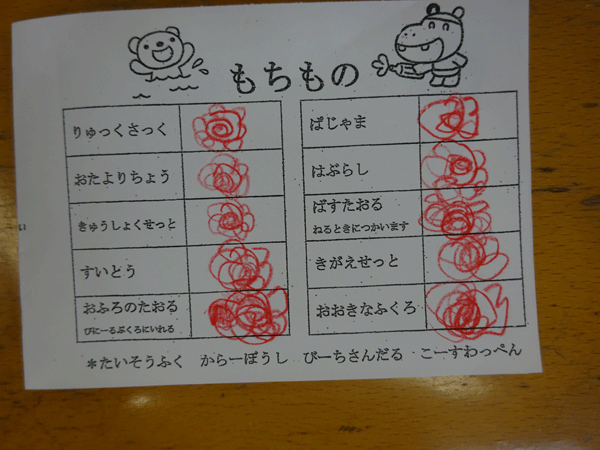 もちもの
りゅっくさっく
おたよりちょう
きゅうしょくせっと
すいとう
おふろのたおる
びにーるぶくろにいれる
ぱじゃま
はぶらし
ばすたおる
ねるときにつかいます
きがえせっと
おおきなふくろ
*たいそうふく からーぼうし びーちさんだる こーすわっぺん